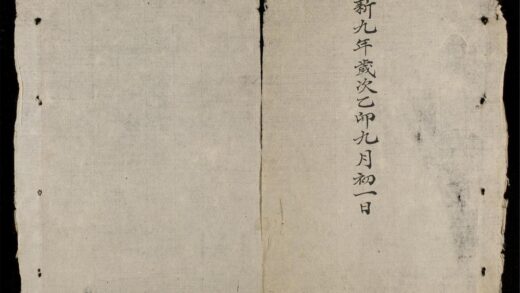 新九年歲次乙卯九月初一日